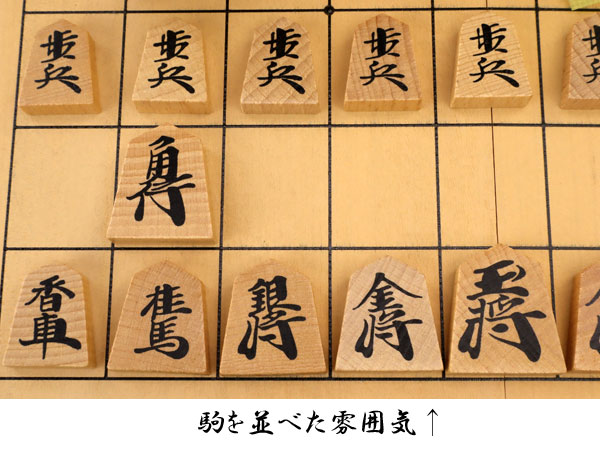 歩兵 歩兵 歩兵 歩兵 歩兵 歩兵
角行
香車 桂馬 銀将 金将 玉将
駒を並べた雰囲気↑